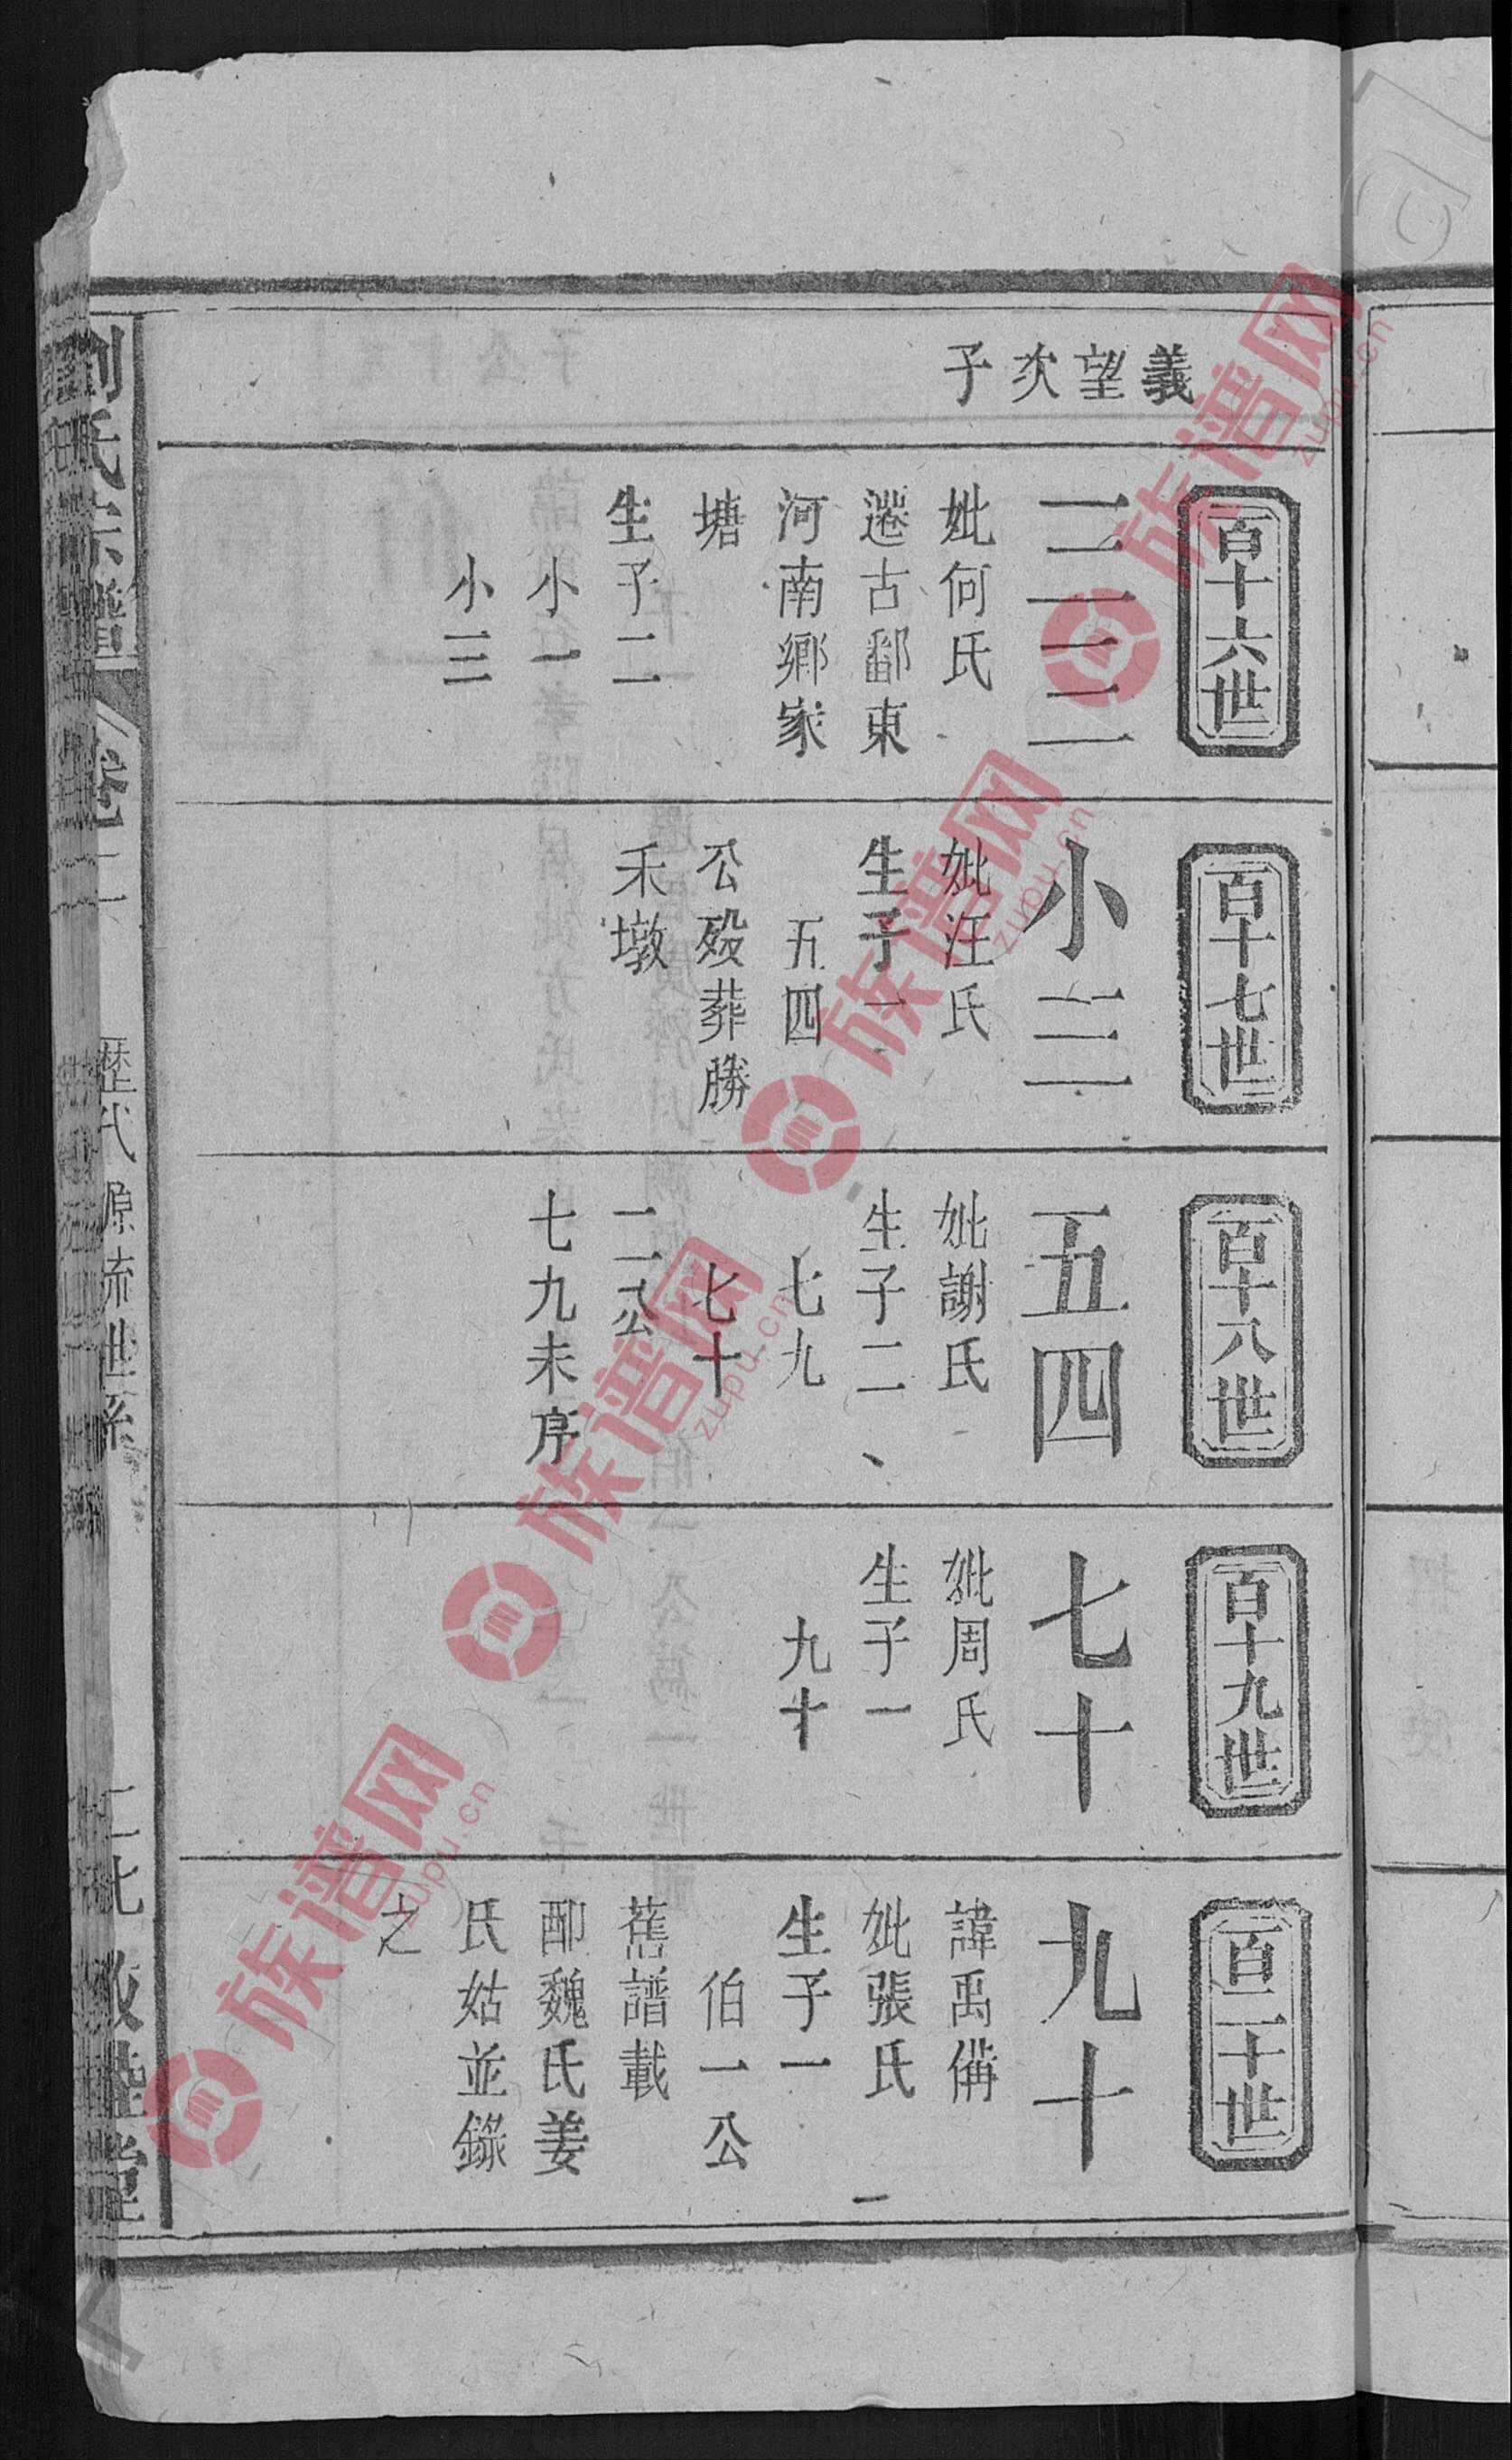 義望次子
百十六世
三三
妣何氏
遷古鄱東
河南鄉家
塘
生子二
小一
小三
百十七世
小三
妣汪氏
生子一
五四
公歿葬勝
禾墩
百十八世
五四
妣謝氏
生子二
七九
七十
二公
七九未序
百十九世
七十
妣周氏
生子一
九十
百二十世
九十
諱禹偁
妣張氏
生子一
伯一公
舊譜載
魏氏姜
氏姑並錄
之
劉氏宗譜
歷代源流世系
敦睦堂
族谱网 zupu.cn
族谱网 zupu.cn
族谱网 zupu.cn
族谱网 zupu.cn